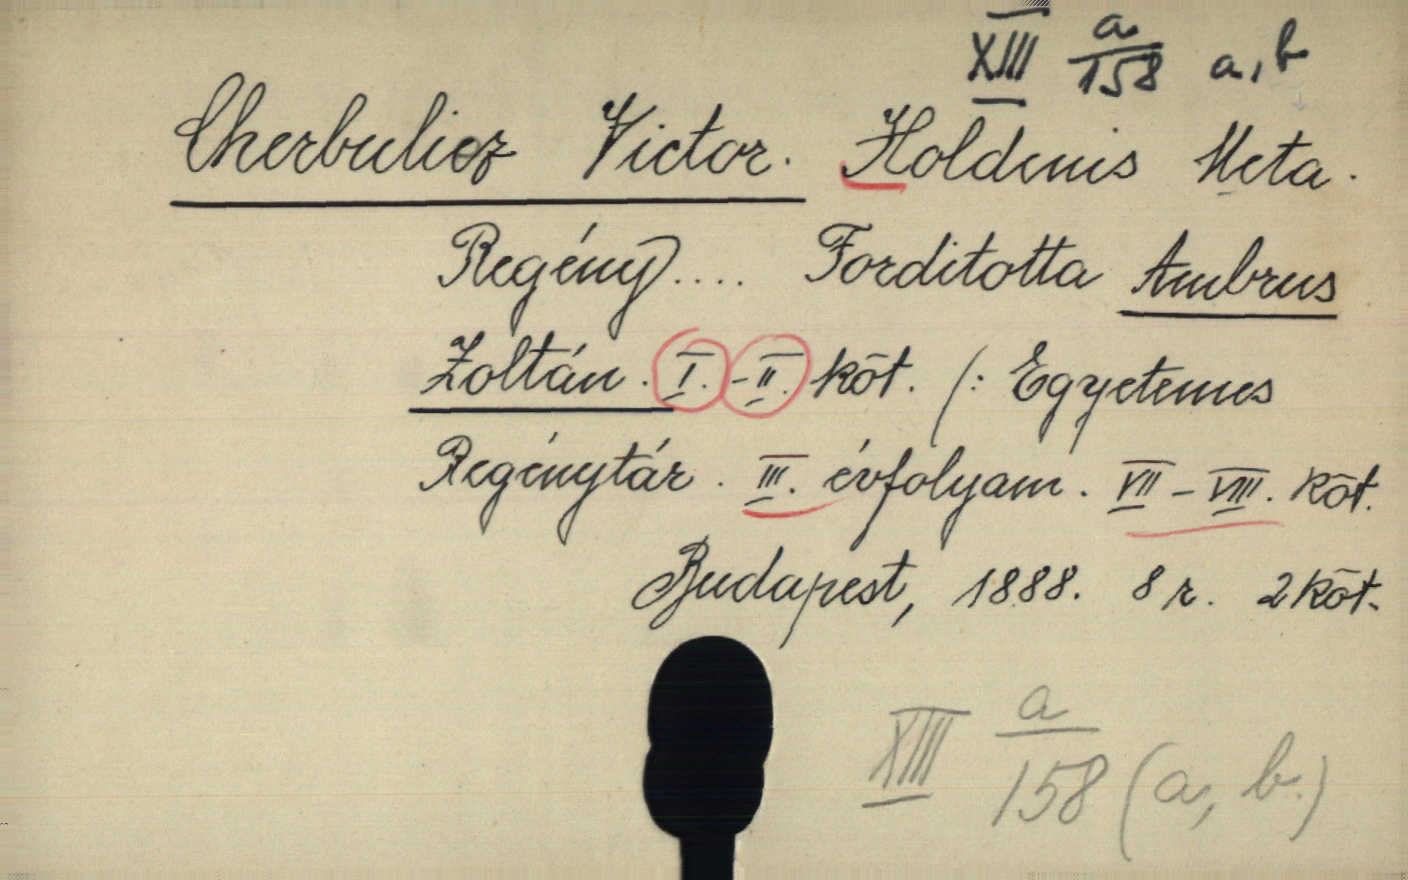 XIII a/158 a, b
Cherbuliez Victor. Holdenis Meta.
Regény.... Forditotta Ambrus
Zoltán. I.-II. köt. (: Egyetemes
Regénytár. III. évfolyam. VII-VIII. köt.
Budapest, 1888. 8 r. 2 köt.
XIII a/158 (a, b.)